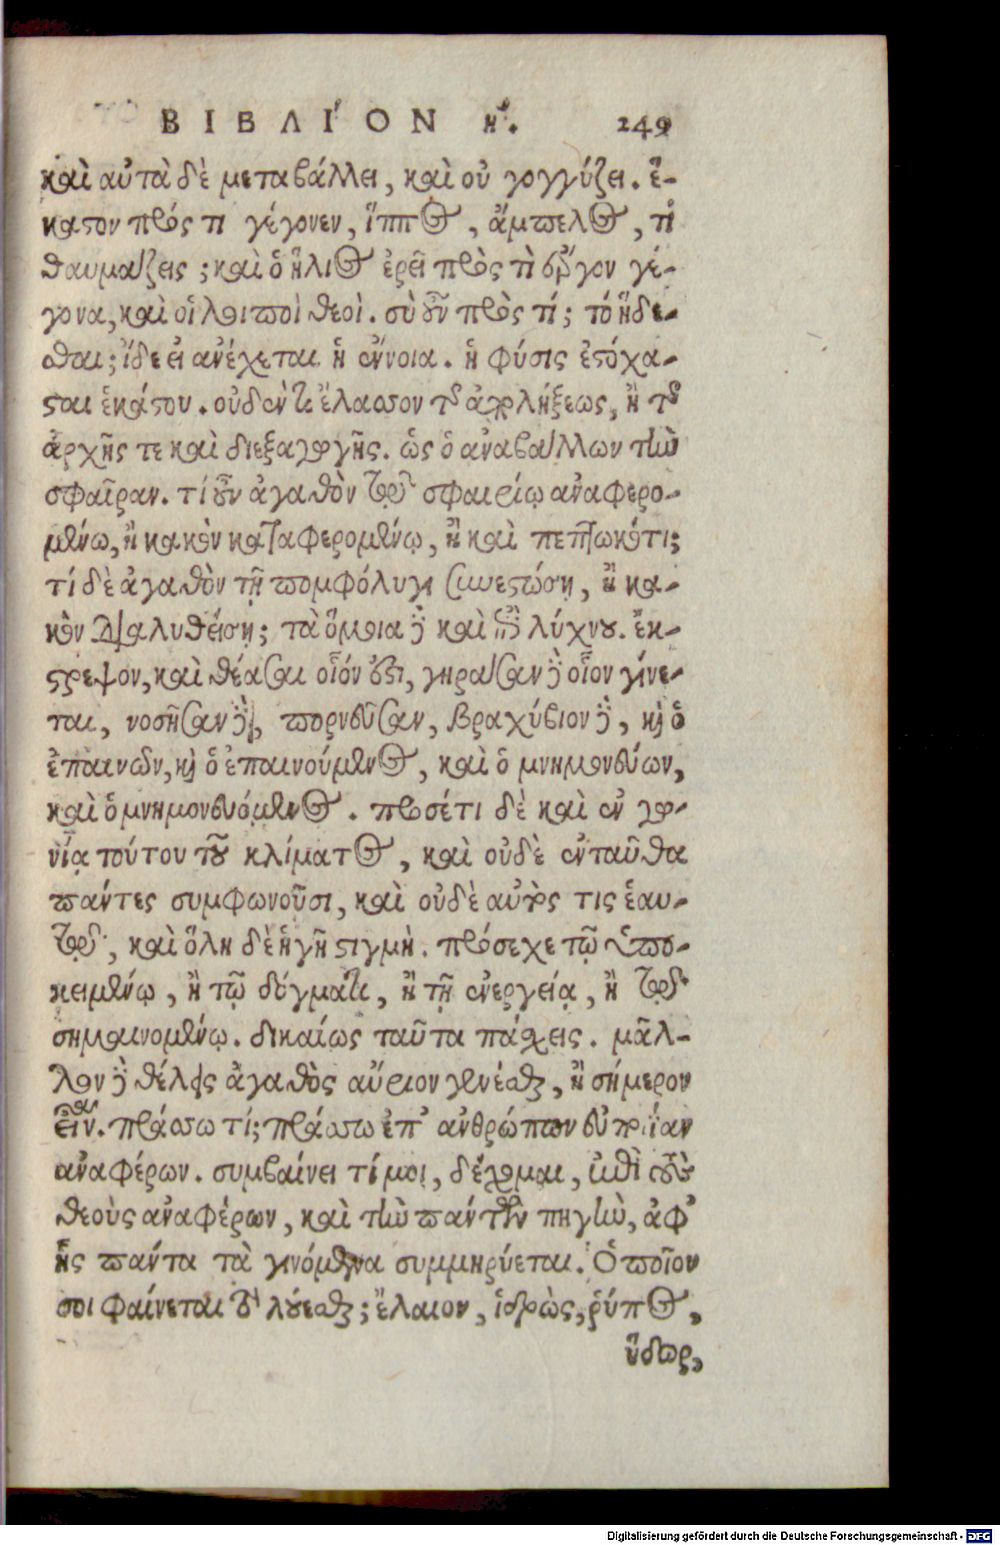 ΒΙΒΛΙ´ΟΝ η´. 249
καὶ αὐτὰ δὲ μεταβάλλει, καὶ οὐ γογγύζει. ἕ-
καστον πρός τι γέγονεν, ἵππος, ἄμπελος, τί
θαυμάζεις; καὶ ὁ ἥλιος ἐρεῖ πρὸς τὶ ἔργον γέ-
γονα, καὶ οἱ λοιποὶ θεοὶ. σὺ οὖν πρὸς τί; τό ἥδε-
σθαι; ἴδε εἰ ἀνέχεται ἡ ἔννοια. ἡ φύσις ἐστόχα-
σται ἑκάστου. οὐδέν τι ἔλασσον τῆς ἀπολήξεως, ἢ τῆς
ἀρχῆς τε καὶ διεξαγωγῆς. ὡς ὁ ἀναβάλλων τὴν
σφαῖραν. τί οὖν ἀγαθὸν τῷ σφαιρίῳ ἀναφερο-
μένω, ἢ κακὸν καταφερομένῳ, ἢ καὶ πεπτωκότι;
τί δὲ ἀγαθὸν τῇ πομφόλυγι συνεστώσῃ, ἢ κα-
κὸν διαλυθείσῃ; τὰ ὅμοια δὲ καὶ ἐπὶ λύχνου. ἔκ-
στρεψον, καὶ θέασαι οἷόν ἐστι, γηράσαν δὲ οἷον γίνε-
ται, νοσῆσαν δὲ, πορνεῦσαν, βραχύβιον δὲ, καὶ ὁ
ἐπαινῶν, καὶ ὁ ἐπαινούμενος, καὶ ὁ μνημονεύων,
καὶ ὁ μνημονευόμενος. προσέτι δὲ καὶ ἐν γω-
νίᾳ τούτου τοῦ κλίματος, καὶ οὐδὲ ἐνταῦθα
πάντες συμφωνοῦσι, καὶ οὐδὲ αὐτός τις ἑαυ-
τῷ, καὶ ὅλη δὲ ἡ γῆ στιγμὴ. πρόσεχε τῷ ὑπο-
κειμένῳ, ἢ τῷ δόγματι, ἢ τῇ ἐνεργείᾳ, ἢ τῷ
σημαινομένῳ. δικαίως ταῦτα πάσχεις. μᾶλ-
λον δὲ θέλεις ἀγαθὸς αὔριον γενέσθαι, ἢ σήμερον
εἶναι. πράσσω τί; πράσσω ἐπ' ἀνθρώπων εὐποιΐαν
ἀναφέρων. συμβαίνει τί μοι, δέχομαι, ἐπὶ τοὺς
θεοὺς ἀναφέρων, καὶ τὴν πάντων πηγὴν, ἀφ'
ἧς πάντα τὰ γινόμενα συμμηρύεται. Ὁποῖον
σοι φαίνεται τὸ λούεσθαι; ἔλαιον, ἱδρὼς, ῥύπος,
ὕδωρ,
Digitalisierung gefördert durch die Deutsche Forschungsgemeinschaft - DFG